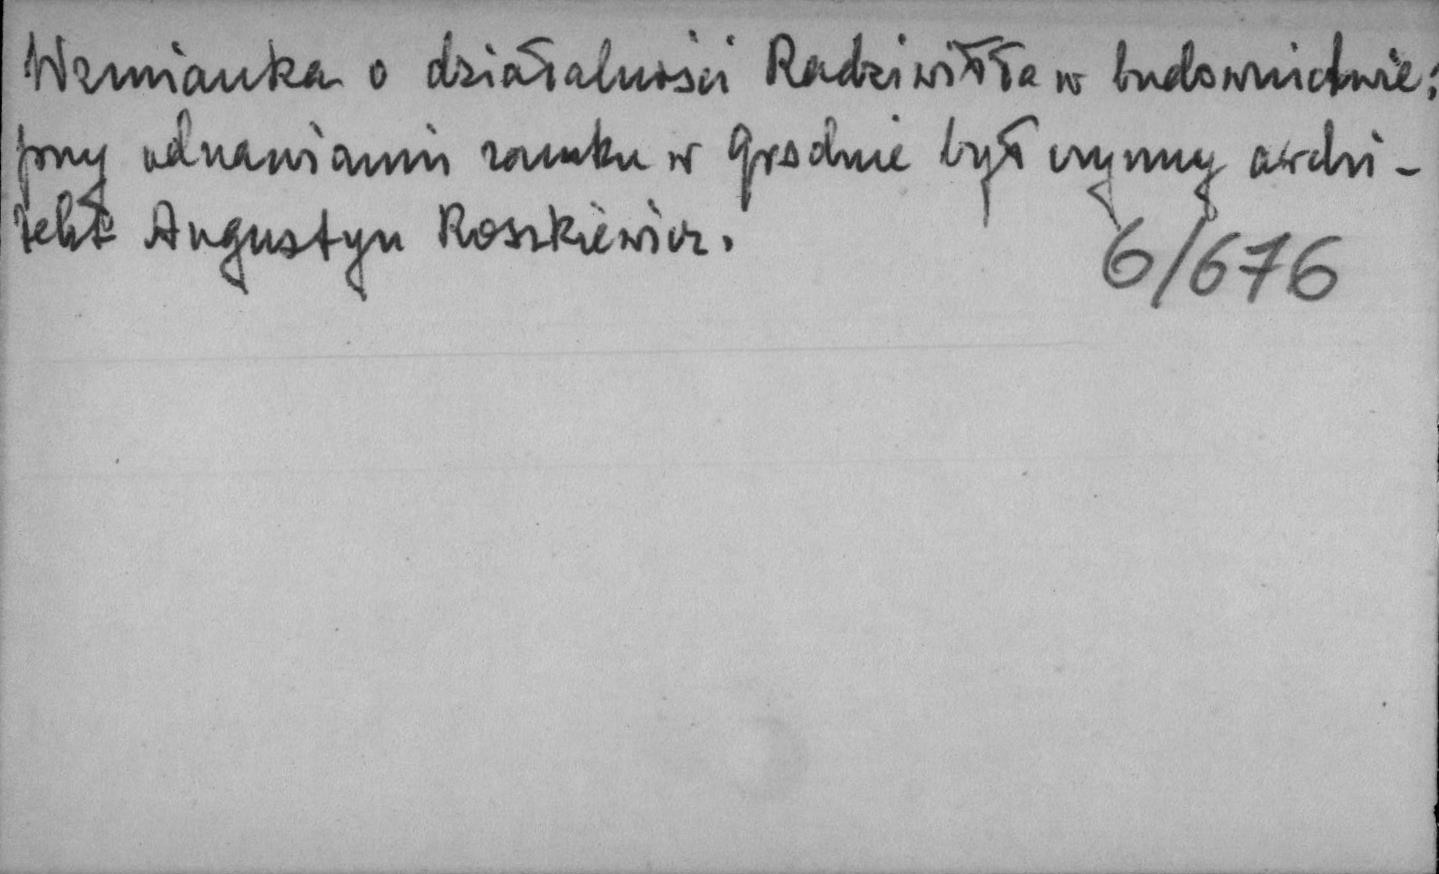 Wzmianka o działalności Radziwiłła w budownictwie:
przy odnawianiu zamku w Grodnie był czynny archi-
tekt Augustyn Roszkiewicz.
6/676